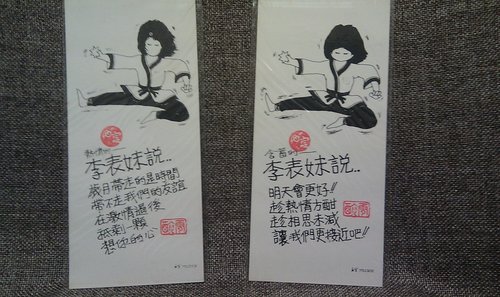 熱情的
李表妹說..
歲月帶走的是時間
帶不走我們的友誼
在激情過後
祇剩一顆
想你的心
含蓄的
李表妹說..
明天會更好!!
趁熱情方酣
趁相思未減
讓我們更接近吧!!